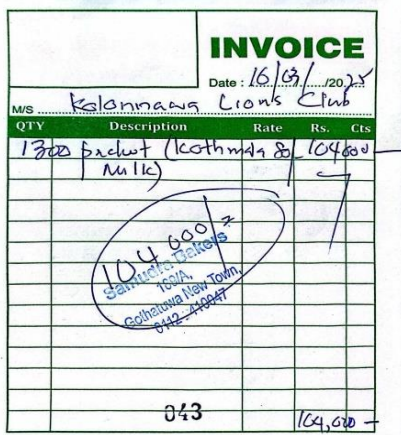 INVOICE
Date : 16/03/2025
M/S Kolonnawa Lions Club
QTY Description Rate Rs. Cts
1300 packet (Kothmala 80/- 104000 -
Milk)
104 000/=
Samudra Bakers
160/A,
Gothatuwa New Town,
0112-410047
043
104,000 -